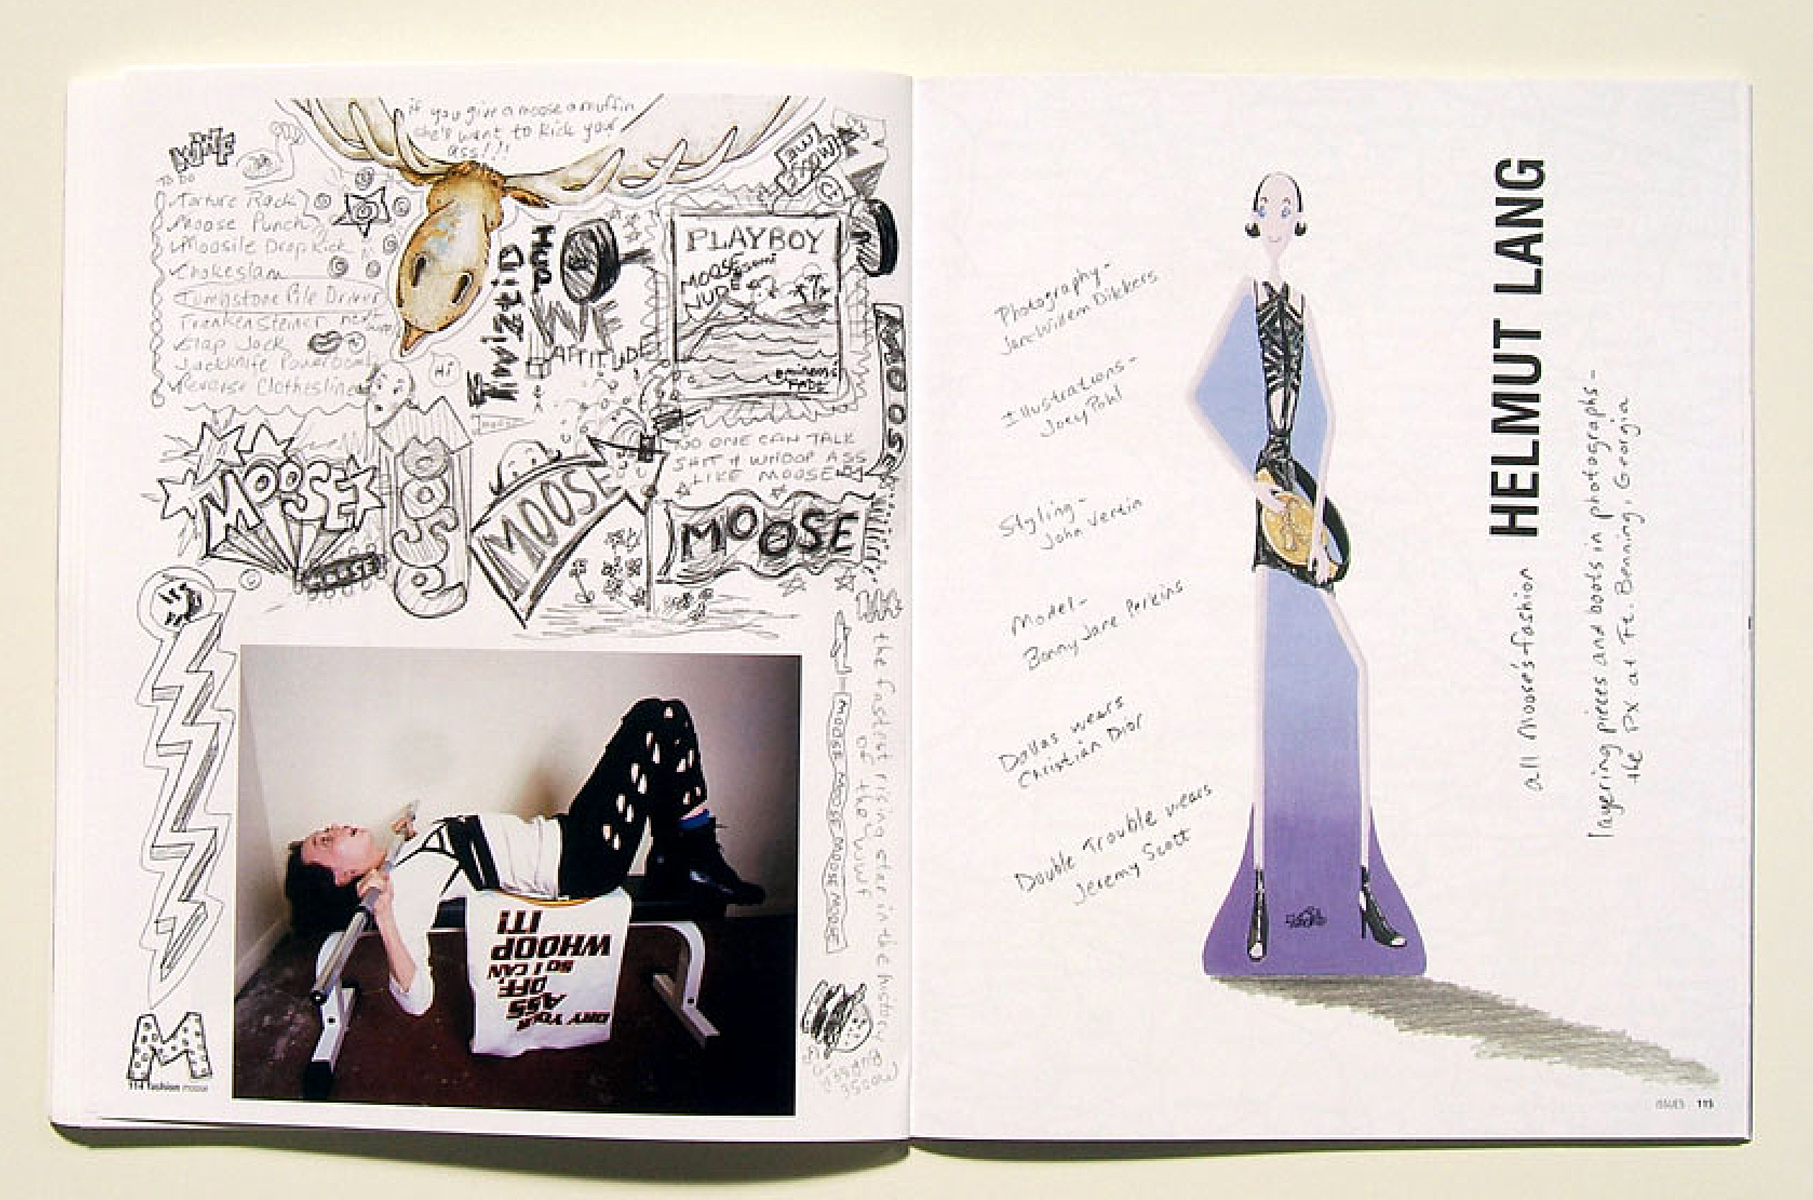 if you give a moose a muffin
she'll want to kick your
ass!!!
WWF
TO DO
Torture Rack
Moose Punch
Moosile Drop Kick
Chokeslam
Tombstone Pile Driver
Frankensteiner
Flap Jack
Jackknife Powerbomb
Reverse Clothesline
Hi
ATTITUDE
PLAYBOY
MOOSE
NUDE
MOOSE
NO ONE CAN TALK
SHIT & WHOOP ASS
LIKE MOOSE
MOOSE
MOOSE
MOOSE
MOOSE
MOOSE
the fastest rising star in the history
of the WWF
MOOSE MOOSE MOOSE MOOSE MOOSE
DRY YOUR
ASS
OFF,
SO I CAN
WHOOP
IT!
M
114 fashion moose
Photography-
Jan-Willem Dikkers
Illustrations-
Joey Pohl
Styling-
John Vertin
Model-
Bonny Jane Perkins
Dallas wears
Christian Dior
Double Trouble wears
Jeremy Scott
all Moose's fashion HELMUT LANG
layering pieces and boots in photographs-
the PX at Ft. Benning, Georgia
ISSUES 115